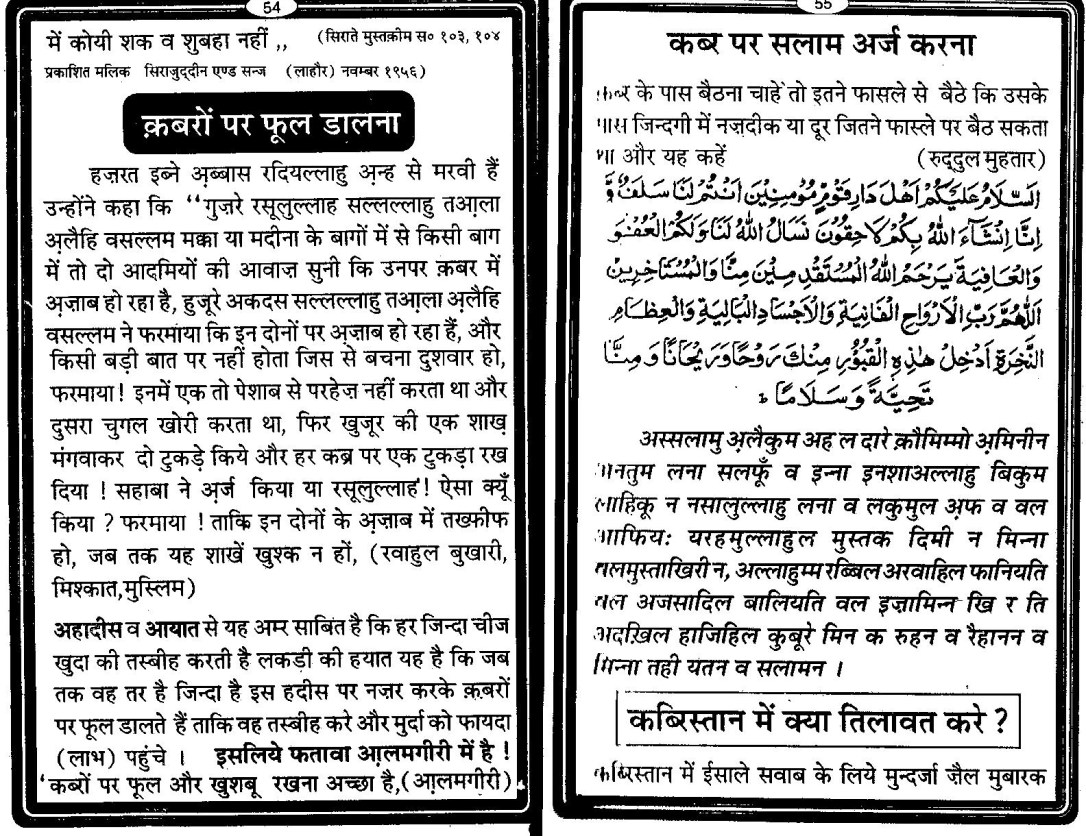 54
में कोयी शक व शुबहा नहीं ,, (सिराते मुस्तक़ीम स० १०३, १०४
प्रकाशित मलिक सिराजुद्दीन एण्ड सन्ज (लाहौर) नवम्बर १९५६)
क़बरों पर फूल डालना
हज़रत इब्ने अ़ब्बास रदियल्लाहु अ़न्ह से मरवी हैं
उन्होंने कहा कि ‘‘गुज़रे रसूलुल्लाह सल्लल्लाहु तआ़ला
अ़लैहि वसल्लम मक्का या मदीना के बागों में से किसी बाग
में तो दो आदमियों की आवाज़ सुनी कि उनपर क़बर में
अ़ज़ाब हो रहा है, हुजूरे अकदस सल्लल्लाहु तआ़ला अ़लैहि
वसल्लम ने फरमाया कि इन दोनों पर अ़ज़ाब हो रहा हैं, और
किसी बड़ी बात पर नहीं होता जिस से बचना दुशवार हो,
फरमाया! इनमें एक तो पेशाब से परहेज़ नहीं करता था और
दुसरा चुगल खोरी करता था, फिर खुजूर की एक शाख़
मंगवाकर दो टुकड़े किये और हर कब्र पर एक टुकड़ा रख
दिया ! सहाबा ने अ़र्ज किया या रसूलुल्लाह! ऐसा क्यूँ
किया ? फरमाया ! ताकि इन दोनों के अ़ज़ाब में तख्फ़ीफ
हो, जब तक यह शाखें खुश्क न हों, (रवाहुल बुखारी,
मिश्कात,मुस्लिम)
अहादीस व आयात से यह अम्र साबित है कि हर जिन्दा चीज
खुदा की तस्बीह करती है लकड़ी की हयात यह है कि जब
तक वह तर है जिन्दा है इस हदीस पर नज़र करके क़बरों
पर फूल डालते हैं ताकि वह तस्बीह करे और मुर्दा को फायदा
(लाभ) पहुंचे । इसलिये फतावा आ़लमगीरी में है !
‘कब्रों पर फूल और खुशबू रखना अच्छा है,(आ़लमगीरी)
55
कब्र पर सलाम अर्ज करना
कब्र के पास बैठना चाहें तो इतने फासले से बैठे कि उसके
पास जिन्दगी में नज़दीक या दूर जितने फास्ले पर बैठ सकता
था और यह कहें (रुद्दुल मुहतार)
اَلسَّلَامُ عَلَيْكُمْ اَهْلَ دَارِ قَوْمٍ مُّؤْمِنِيْنَ اَنْتُمْ لَنَا سَلَفٌ وَّ
اِنَّا اِنْشَآءَ اللهُ بِكُمْ لَاحِقُوْنَ نَسْاَلُ اللهَ لَنَا وَلَكُمُ الْعَفْوَ
وَالْعَافِيَةَ يَرْحَمُ اللهُ الْمُسْتَقْدِمِيْنَ مِنَّا وَالْمُسْتَاخِرِيْنَ
اَللّٰهُمَّ رَبِّ الْاَرْوَاحِ الْفَانِيَةِ وَالْاَجْسَادِ الْبَالِيَةِ وَالْعِظَامِ
النَّخِرَةِ اَدْخِلْ هٰذِهِ الْقُبُوْرِ مِنْكَ رَوْحًا وَّرَيْحَانًا وَّمِنَّا
تَحِيَّةً وَّسَلَامًا
अस्सलामु अ़लैकुम अह ल दारे क़ौमिम्मो अ़मिनीन
अनतुम लना सलफूँ व इन्ना इनशाअल्लाहु बिकुम
लाहिकू न नसालुल्लाहु लना व लकुमुल अ़फ व वल
आफियः यरहमुल्लाहुल मुस्तक दिमी न मिन्ना
वलमुस्ताखिरी न, अल्लाहुम्म रब्बिल अरवाहिल फानियति
वल अजसादिल बालियति वल इज़ामिन्न खि र ति
अदख़िल हाजिहिल कुबूरे मिन क रुहन व रैहानन व
मिन्ना तही यतन व सलामन ।
कब्रिस्तान में क्या तिलावत करे ?
कब्रिस्तान में ईसाले सवाब के लिये मुन्दर्जा ज़ैल मुबारक